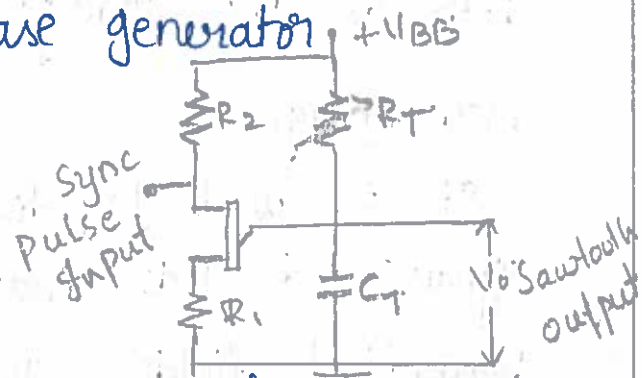 ase generator
+VBB
R2
RT
Sync
Pulse
Input
R1
CT
Vo Sawtooth
output